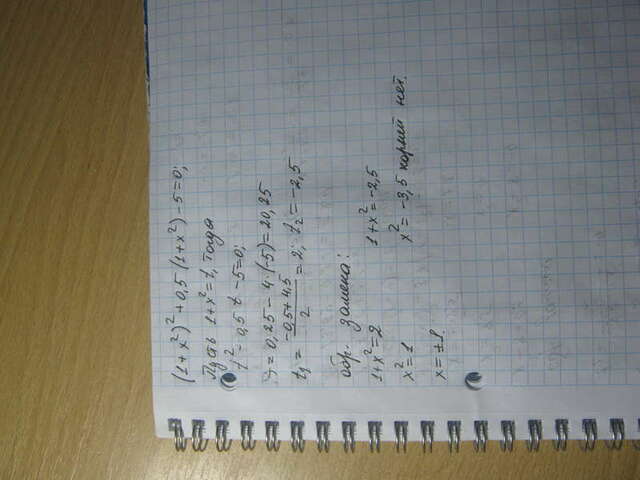 (1+x²)²+0,5(1+x²)-5=0;
Пусть 1+x²=t, тогда
t²-0,5t-5=0;
D=0,25-4·(-5)=20,25
t₁=(-0,5+4,5)/2=2; t₂=-2,5
обр. замена:
1+x²=2 1+x²=-2,5
x²=1 x²=-3,5 корней нет.
x=±1